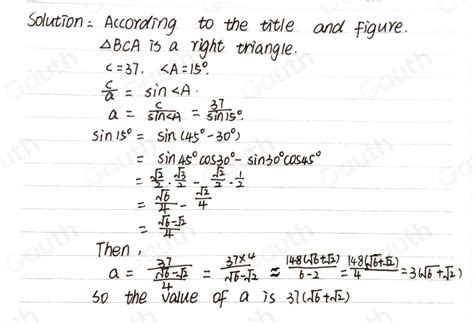 Solution: According to the title and figure.
△BCA is a right triangle.
c=37. <A=15°.
c/a = sin<A.
a = c/sin<A = 37/sin15°.
sin15° = sin(45°-30°)
= sin45°cos30°-sin30°cos45°
= √2/2·√3/2-√2/2·1/2
= √6/4-√2/4
= (√6-√2)/4
Then,
a = 37/((√6-√2)/4) = 37×4/(√6-√2) = 148(√6+√2)/(6-2) = 148(√6+√2)/4 =3(√6+√2)
So the value of a is 37(√6+√2)
Gauth
Gauth
Gauth
Gauth
Gauth